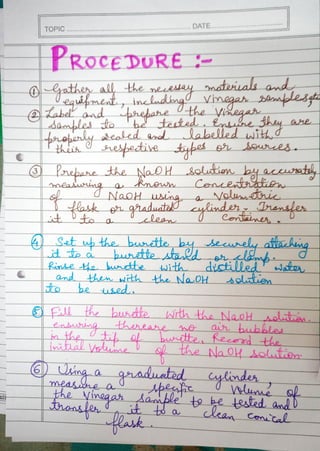 TOPIC
DATE
PROCEDURE :-
① Gather all the necessay materials and
equipment, including vinegar samples etc
② Label and prepare the vinegar
samples to be tested. Ensure they are
properly sealed and labelled with
their respective types or sources.
③ Prepare the NaOH solution by accurately
measuring a known concentration
of NaOH using a volumetric
flask or graduated cylinder. Transfer
it to a clean container.
④ Set up the burette by securely attaching
it to a burette stand or clamp.
Rinse the burette with distilled water
and then with the NaOH solution
to be used.
⑤ Fill the burette with the NaOH solution.
ensuring thereare no air bubbles
in the tip of burette. Record the
initial volume of the NaOH solution
⑥ Using a graduated cylinder,
measure a specific volume of
the vinegar sample to be tested and
transfer it to a clean conical
flask.